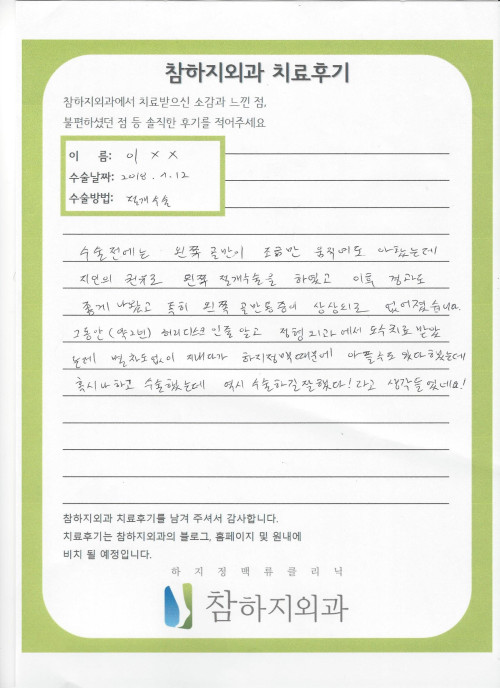 참하지외과 치료후기
참하지외과에서 치료받으신 소감과 느낀 점,
불편하셨던 점 등 솔직한 후기를 적어주세요
이 름: 이 x x
수술날짜: 2018. 1. 12
수술방법: 절개수술
수술전에는 왼쪽 골반이 조금만 움직여도 아팠는데
지인의 권유로 왼쪽 절개수술을 하였고 이후 경과도
좋게 나왔고 특히 왼쪽 골반통증이 상상외로 없어졌습니다.
그동안 (약2년) 허리디스크 인줄 알고 정형외과에서 도수치료 받았
는데 별차도없이 지내다가 하지정맥때문에 아플수도 있다 했는데
혹시나 하고 수술했는데 역시 수술하길 잘했다! 라고 생각들었네요!
참하지외과 치료후기를 남겨 주셔서 감사합니다.
치료후기는 참하지외과의 블로그, 홈페이지 및 원내에
비치 될 예정입니다.
하지정맥류클리닉
참하지외과